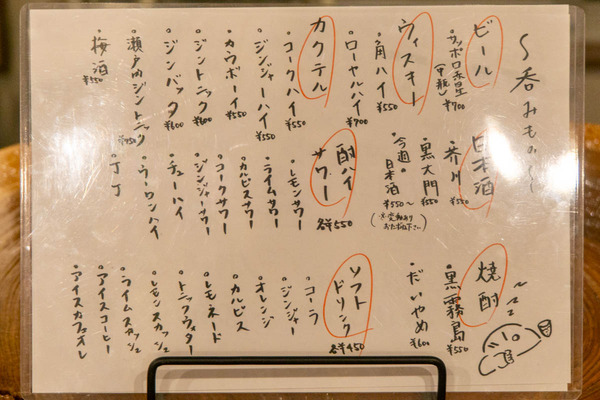 ～呑みもの～
ビール
・サッポロ赤星 ¥700
(中瓶)
ウィスキー
・角ハイ ¥550
・ローヤルハイ ¥700
カクテル
・コークハイ ¥550
・ジンジャーハイ ¥550
・カウボーイ ¥550
・ジントニック ¥600
・ジンバック ¥600
・瀬戸内ジントニック ¥750
・梅酒 ¥550
日本酒
・芥川 ¥550
・黒大門 ¥550
・今週の日本酒 ¥550～
(※変動あり
お尋ね下さい)
酎ハイ
サワー
各¥550
・レモンサワー
・ライムサワー
・カルピスサワー
・コークサワー
・ジンジャーサワー
・チューハイ
・ウーロンハイ
・丁丁
焼酎
・黒霧島 ¥550
・だいやめ ¥600
ソフト
ドリンク
各¥450
・コーラ
・ジンジャー
・オレンジ
・カルピス
・レモネード
・トニックウォーター
・レモンスカッシュ
・ライムスカッシュ
・アイスコーヒー
・アイスカフェオレ